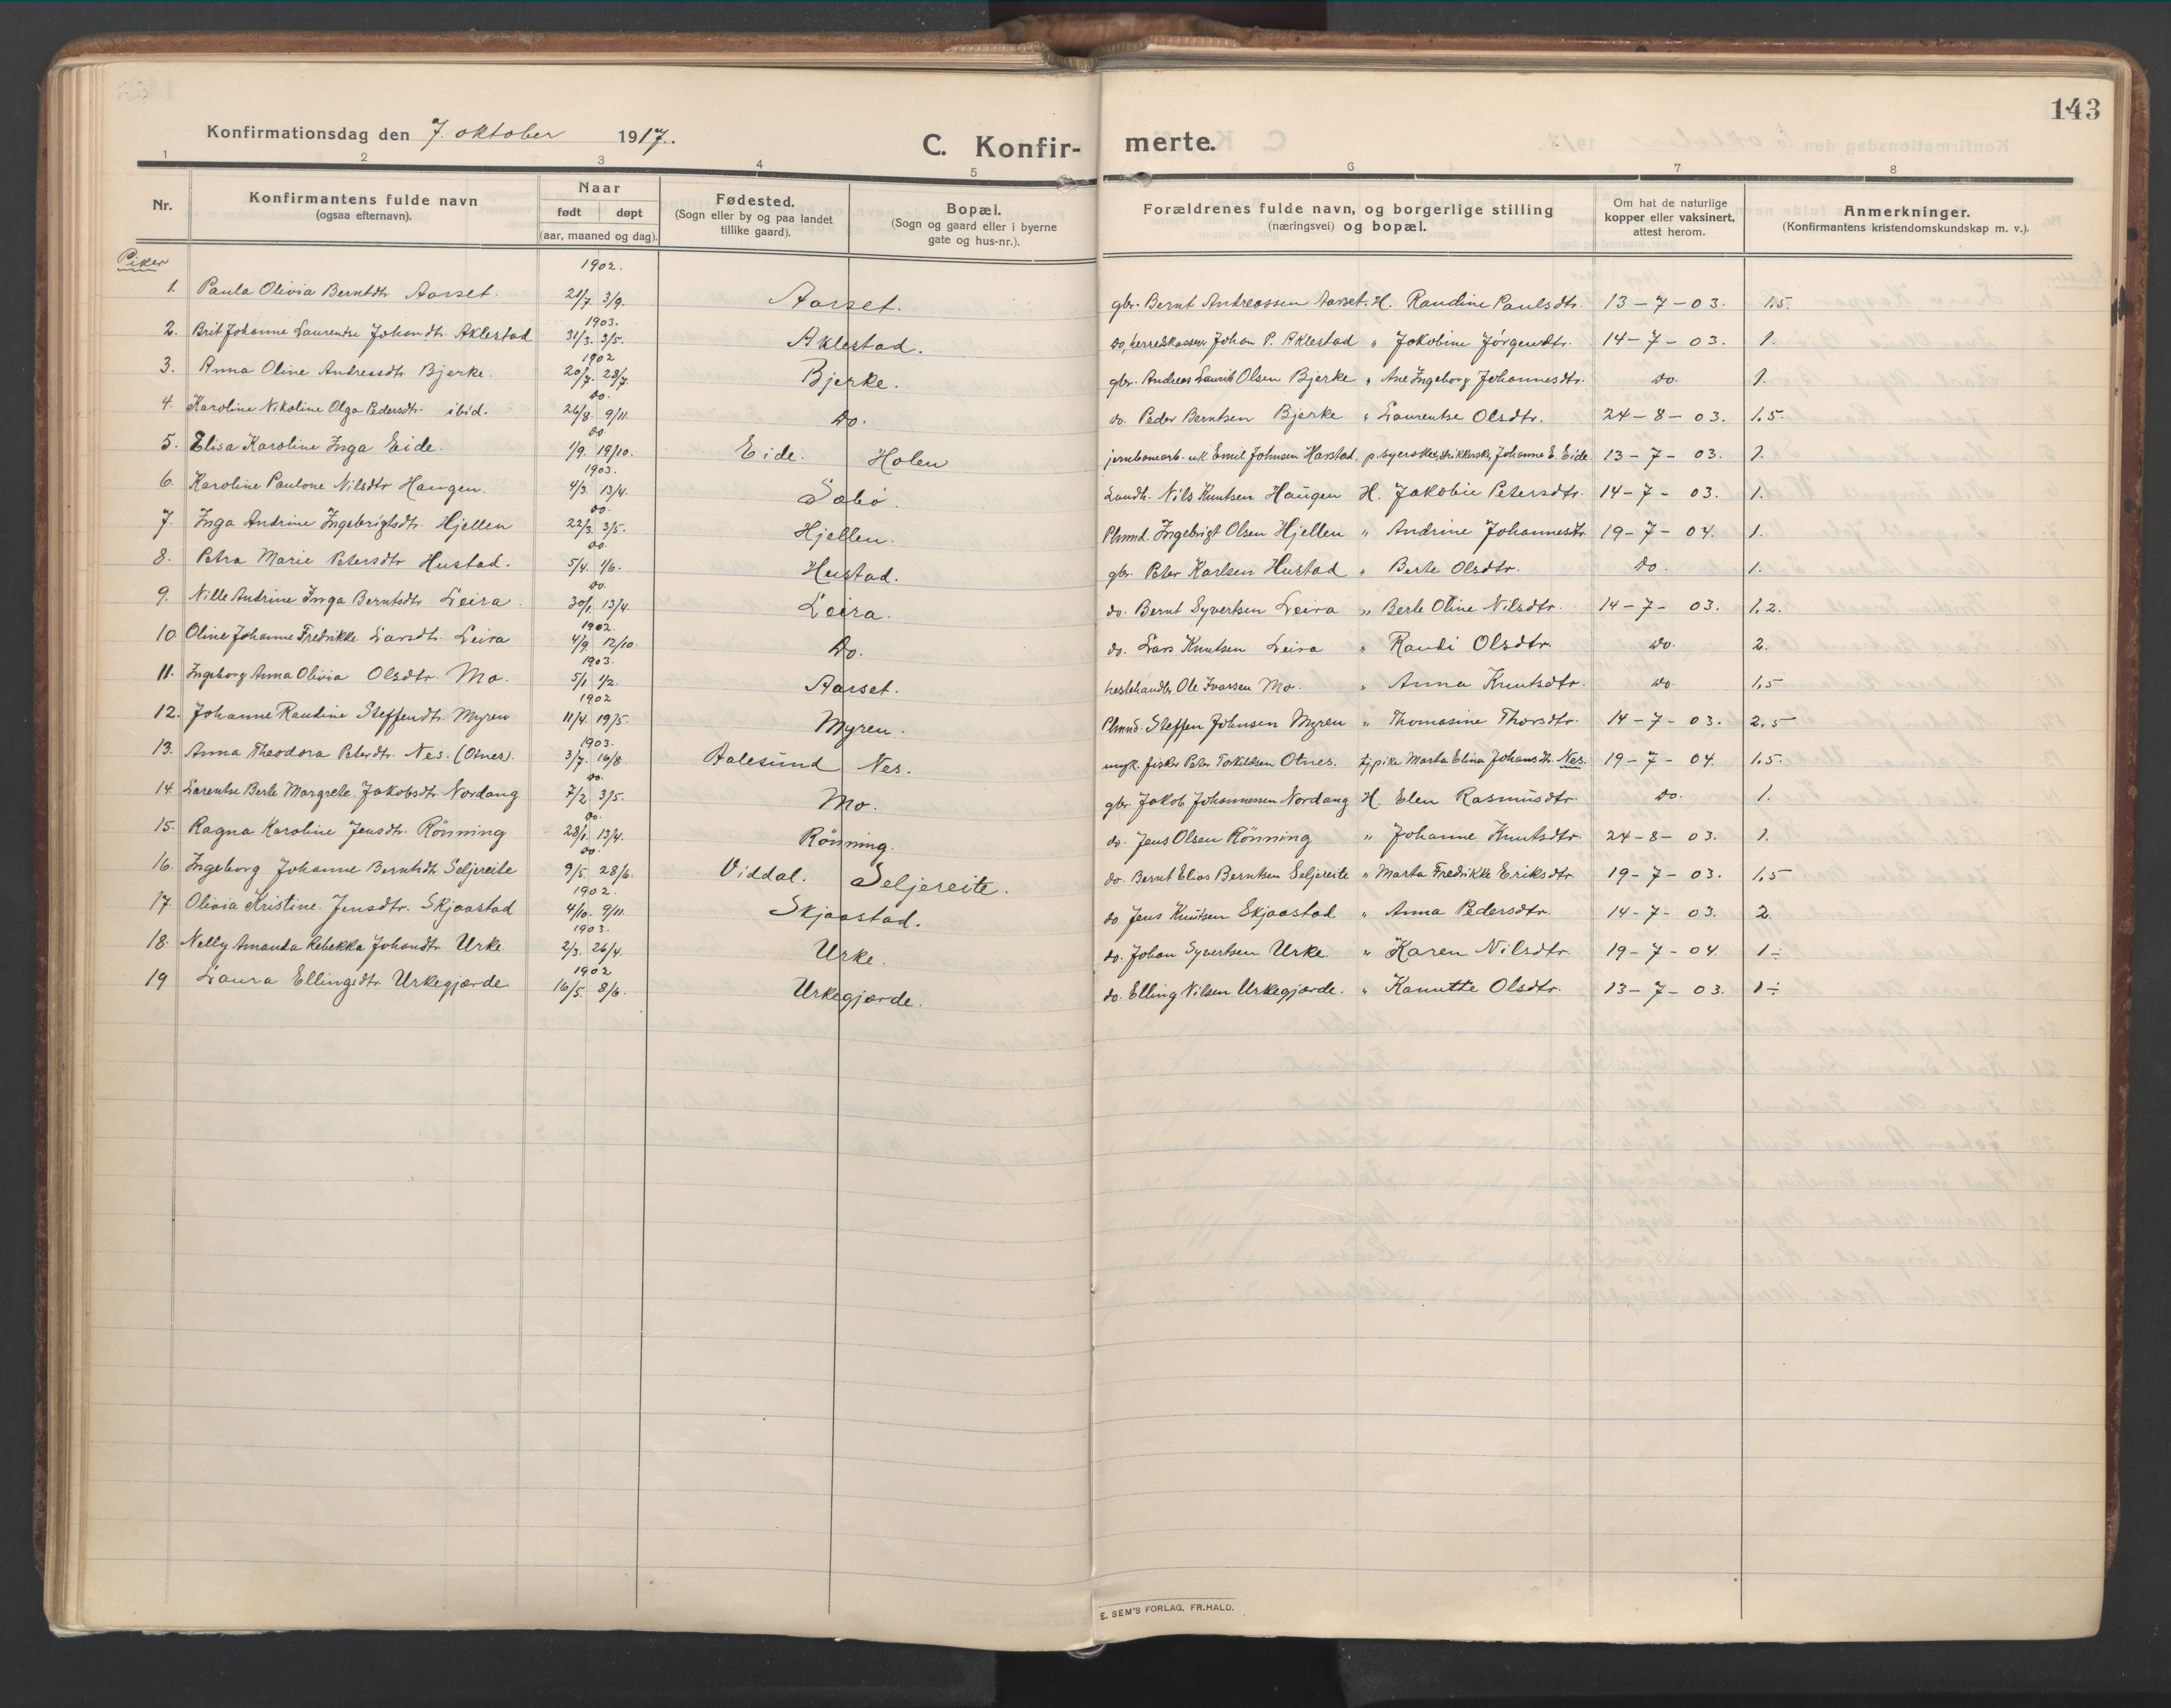 143
Konfirmationsdag den 7. oktober 1917.
C. Konfirmerte.
1 2 3 4 5 6 7 8
Nr. Konfirmantens fulde navn (ogsaa efternavn). Naar født døpt (aar, maaned og dag). Fødested. (Sogn eller by og paa landet tillike gaard). Bopæl. (Sogn og gaard eller i byerne gate og hus-nr.). Forældrenes fulde navn, og borgerlige stilling (næringsvei) og bopæl. Om hat de naturlige kopper eller vaksinert, attest herom. Anmerkninger. (Konfirmantens kristendomskundskap m. v.).
Piker
1902.
1. Paula Olivia Berntdtr. Aarset. 21/7 3/9. Aarset. gbr. Bernt Andreassen Aarset. H. Raudine Paulsdtr. 13-7-03. 1.5.
1903.
2. Brit Johanne Laurentse Johandtr. Aklestad 31/3. 3/5. Aklestad. do, herredskasser Johan P. Aklestad " Jakobine Jørgendtr. 14-7-03. 1.
1902
3. Anna Oline Andreasdtr. Bjerke. 20/7. 28/7. Bjerke. gbr. Andreas Laurits Olsen Bjerke " Ane Ingeborg Johannesdtr. do. 1.
do.
4. Karoline Nikoline Olga Pedersdtr. ibid. 26/8. 9/11. do. do. Peder Berntsen Bjerke " Laurentse Olsdtr. 24-8-03. 1.5.
do
5. Elisa Karoline Inga Eide. 1/9. 19/10. Eide. Holen jernbanearb. u.k. Emil Johnsen Harstad, p. syerske, strikkerske, Johanne E. Eide 13-7-03. 1.
1903.
6. Karoline Paulone Nilsdtr Haugen. 4/3. 13/4. Sæbø. Landh. Nils Knutsen Haugen H. Jakobie Petersdtr. 14-7-03. 1.
do.
7. Inga Andrine Ingebrigtsdtr. Hjellen 22/3. 3/5. Hjellen. Plmnd. Ingebrigt Olsen Hjellen " Andrine Johannesdtr. 19-7-04. 1.
do.
8. Petra Marie Petersdtr Hustad. 5/4. 1/6. Hustad. gbr. Peter Karlsen Hustad " Berte Olsdtr. do. 1.
do.
9. Nille Andrine Inga Berntsdtr Leira. 30/1. 13/4. Leira. do. Bernt Syvertsen Leira " Berte Oline Nilsdtr. 14-7-03. 1,2.
1902.
10. Oline Johanne Fredrikke Larsdtr. Leira 4/9. 12/10. do. do. Lars Knutsen Leira " Randi Olsdtr. do. 2.
1903.
11. Ingeborg Anna Olivia Olsdtr. Mo. 5/1 1/2. Aarset. hestehandler Ole Ivarsen Mo. " Anna Knutsdtr. do. 1,5
1902
12. Johanne Raudine Steffendtr. Myren 11/4. 19/5. Myren. Plmnd. Steffen Johnsen Myren " Thomasine Thorsdtr. 14-7-03. 2,5
1903.
13. Anna Theodora Peterdtr. Nes. (Otnes). 3/7. 16/8. Aalesund Nes. ungk. fisker Peter Torkildsen Otnes, tj.pike Marta Elina Johansdtr. Nes. 19-7-04. 1.5.
do.
14. Larentse Berte Margrete. Jakobsdtr Nordang 7/2 3/5. Mo. gbr. Jakob Johannessen Nordang H. Elen Rasmusdtr. do. 1.
do.
15. Ragna Karoline Jensdtr. Rönning 28/1. 13/4. Rönning. do. Jens Olsen Rönning " Johanne Knutsdtr. 24-8-03. 1.
do.
16. Ingeborg Johanne Berntsdtr Seljereite 9/5. 28/6. Viddal. Seljereite. do. Bernt Elias Berntsen Seljereite " Marta Fredrikke Eriksdtr. 19-7-03. 1.5
1902.
17. Olivia Kristine. Jensdtr. Skjaastad 4/10. 9/11. Skjaastad. do Jens Knutsen Skjaastad " Anna Pedersdtr. 14-7-03. 2.
1903.
18. Nelly Amanda Rebekka Johandtr. Urke 2/3. 26/4. Urke. do. Johan Syvertsen Urke. " Karen Nilsdtr. 19-7-04. 1÷
1902
19 Laura Ellingsdtr. Urkegjærde 16/5. 8/6. Urkegjærde. do. Elling Nilsen Urkegjærde. " Kanutte Olsdtr. 13-7-03. 1÷
E. SEM'S FORLAG, FR.HALD.